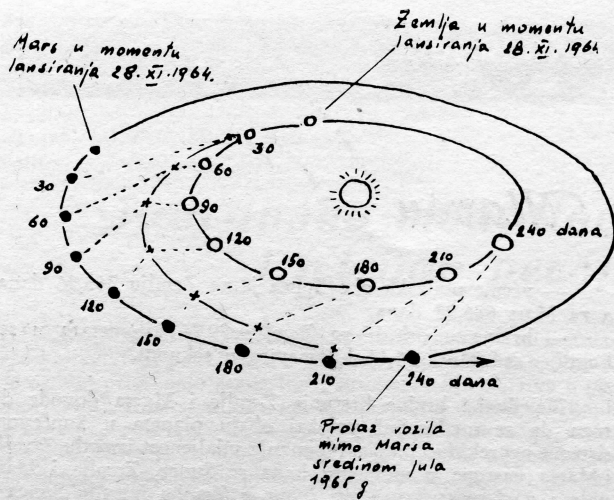 Zemlja u momentu
lansiranja 28. XI. 1964.
Mars u momentu
lansiranja 28. XI. 1964.
30
60
90
120
150
180
210
240 dana
30
60
90
120
150
180
210
240 dana
Prolaz vozila
mimo Marsa
sredinom jula
1965 g